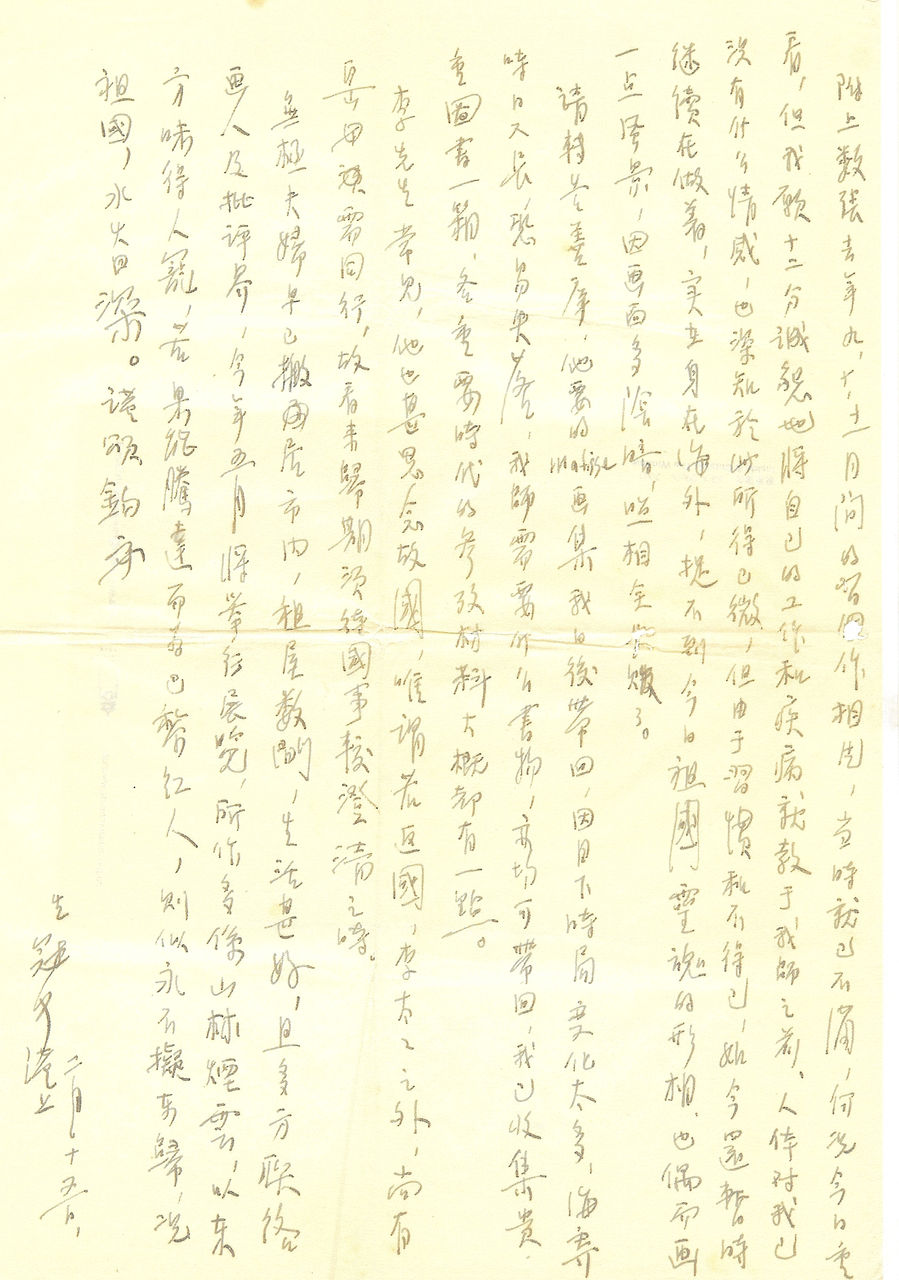 附上数張去年九,十,十一月间的習作相片,当時就已不滿,何况今日重
看,但我願十二分誠懇地將自己的工作和疾病就教于我師之前。人体对我已
没有什么情感,也深知於此所得已微,但由于習慣和不得已,如今還暫時
继續在做着,实在身在海外,捉不到今日祖國靈魂的形相。也偶而画
一点風景,因画面多陰暗,照相全
請轉告 他要的 画集我日後帶回,因目下時局变化太多,海寄
時日久長,恐易失落,我師需要什么書物,亦均可帶回,我已收集貴
重圖書一箱,各重要時代的参攷材料大概都有一點。
李先生常見,他也甚思念故國,唯謂若返國,李太太之外,尚有
岳母 需同行,故看来歸期須待國事較澄清之時。
無極夫婦早已搬 居市内,租屋数間,生活甚好,且多方联络
画人及批评界,今年五月將举行展览,所作多係山林煙雲,以东
方味得人寵,若果能騰達而為巴黎红人,則似永不擬东歸,况
祖國,水火日深。謹頌鈞安
生 冠中 謹上
二月十五日,